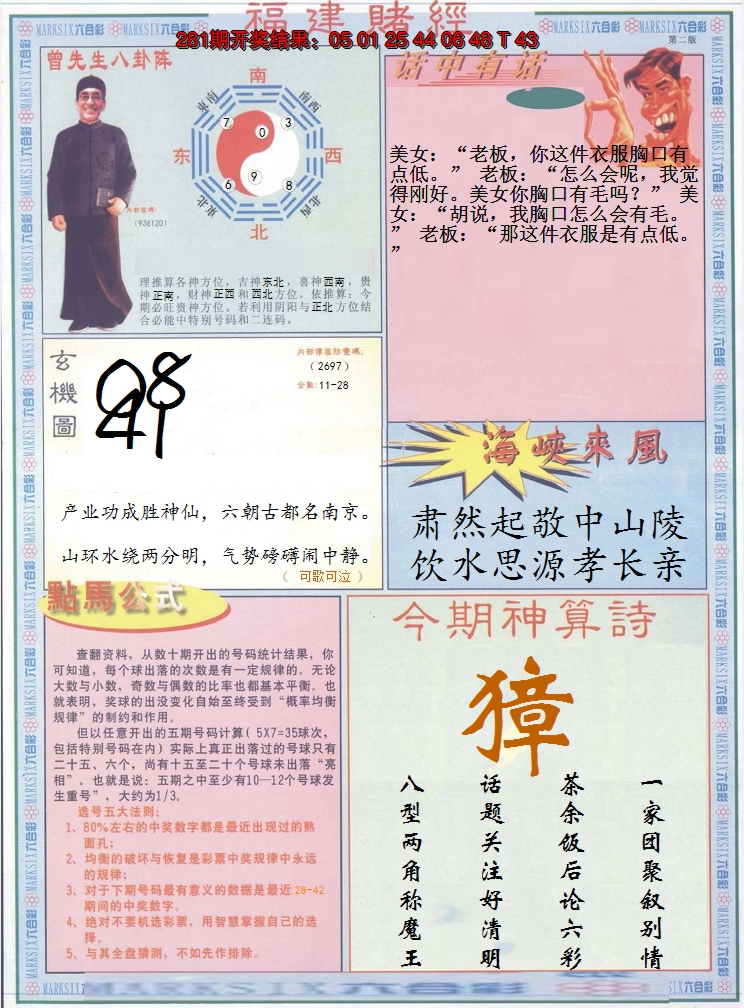 福建賭經
281期开奖结果：05 01 25 44 06 48 T 43
第二版
MARKSIX六合彩
曾先生八卦阵
南
东南
南西
7
0
3
东
西
6
9
8
东北
北西
北
内部密碼：
（936120）
理推算各神方位，吉神东北，喜神西南，贵
神正南，财神正西和西北方位。依推算：今
期必旺贵神方位。若利用阴阳与正北方位结
合必能中特别号码和二连码。
话中有话
美女：“老板，你这件衣服胸口有
点低。” 老板：“怎么会呢，我觉
得刚好。美女你胸口有毛吗？” 美
女：“胡说，我胸口怎么会有毛。
” 老板：“那这件衣服是有点低。
”
玄機圖
（2697）
合数：11-28
产业功成胜神仙，六朝古都名南京。
山环水绕两分明，气势磅礴闹中静。
（ 可歌可泣 ）
海峽來風
肃然起敬中山陵
饮水思源孝长亲
點馬公式
查翻资料，从数十期开出的号码统计结果，你
可知道，每个球出落的次数是有一定规律的。无论
大数与小数，奇数与偶数的比率也都基本平衡。也
就表明，奖球的出没变化自始至终受到“概率均衡
规律”的制约和作用。
但以任意开出的五期号码计算（5X7=35球次，
包括特别号码在内）实际上真正出落过的号球只有
二十五、六个，尚有十五至二十个号球未出落“亮
相”。也就是说：五期之中至少有10—12个号球发
生重号”，大约为1/3。
选号五大法则：
1、80%左右的中奖数字都是最近出现过的熟
面孔；
2、均衡的破坏与恢复是彩票中奖规律中永远
的规律；
3、对于下期号码最有意义的数据是最近28-42
期间的中奖数字。
4、绝对不要机选彩票，用智慧掌握自己的选
择。
5、与其全盘猜测，不如先作排除。
今期神算詩
獐
一家团聚叙别情
茶余饭后论六彩
话题关注好清明
八型两角称魔王